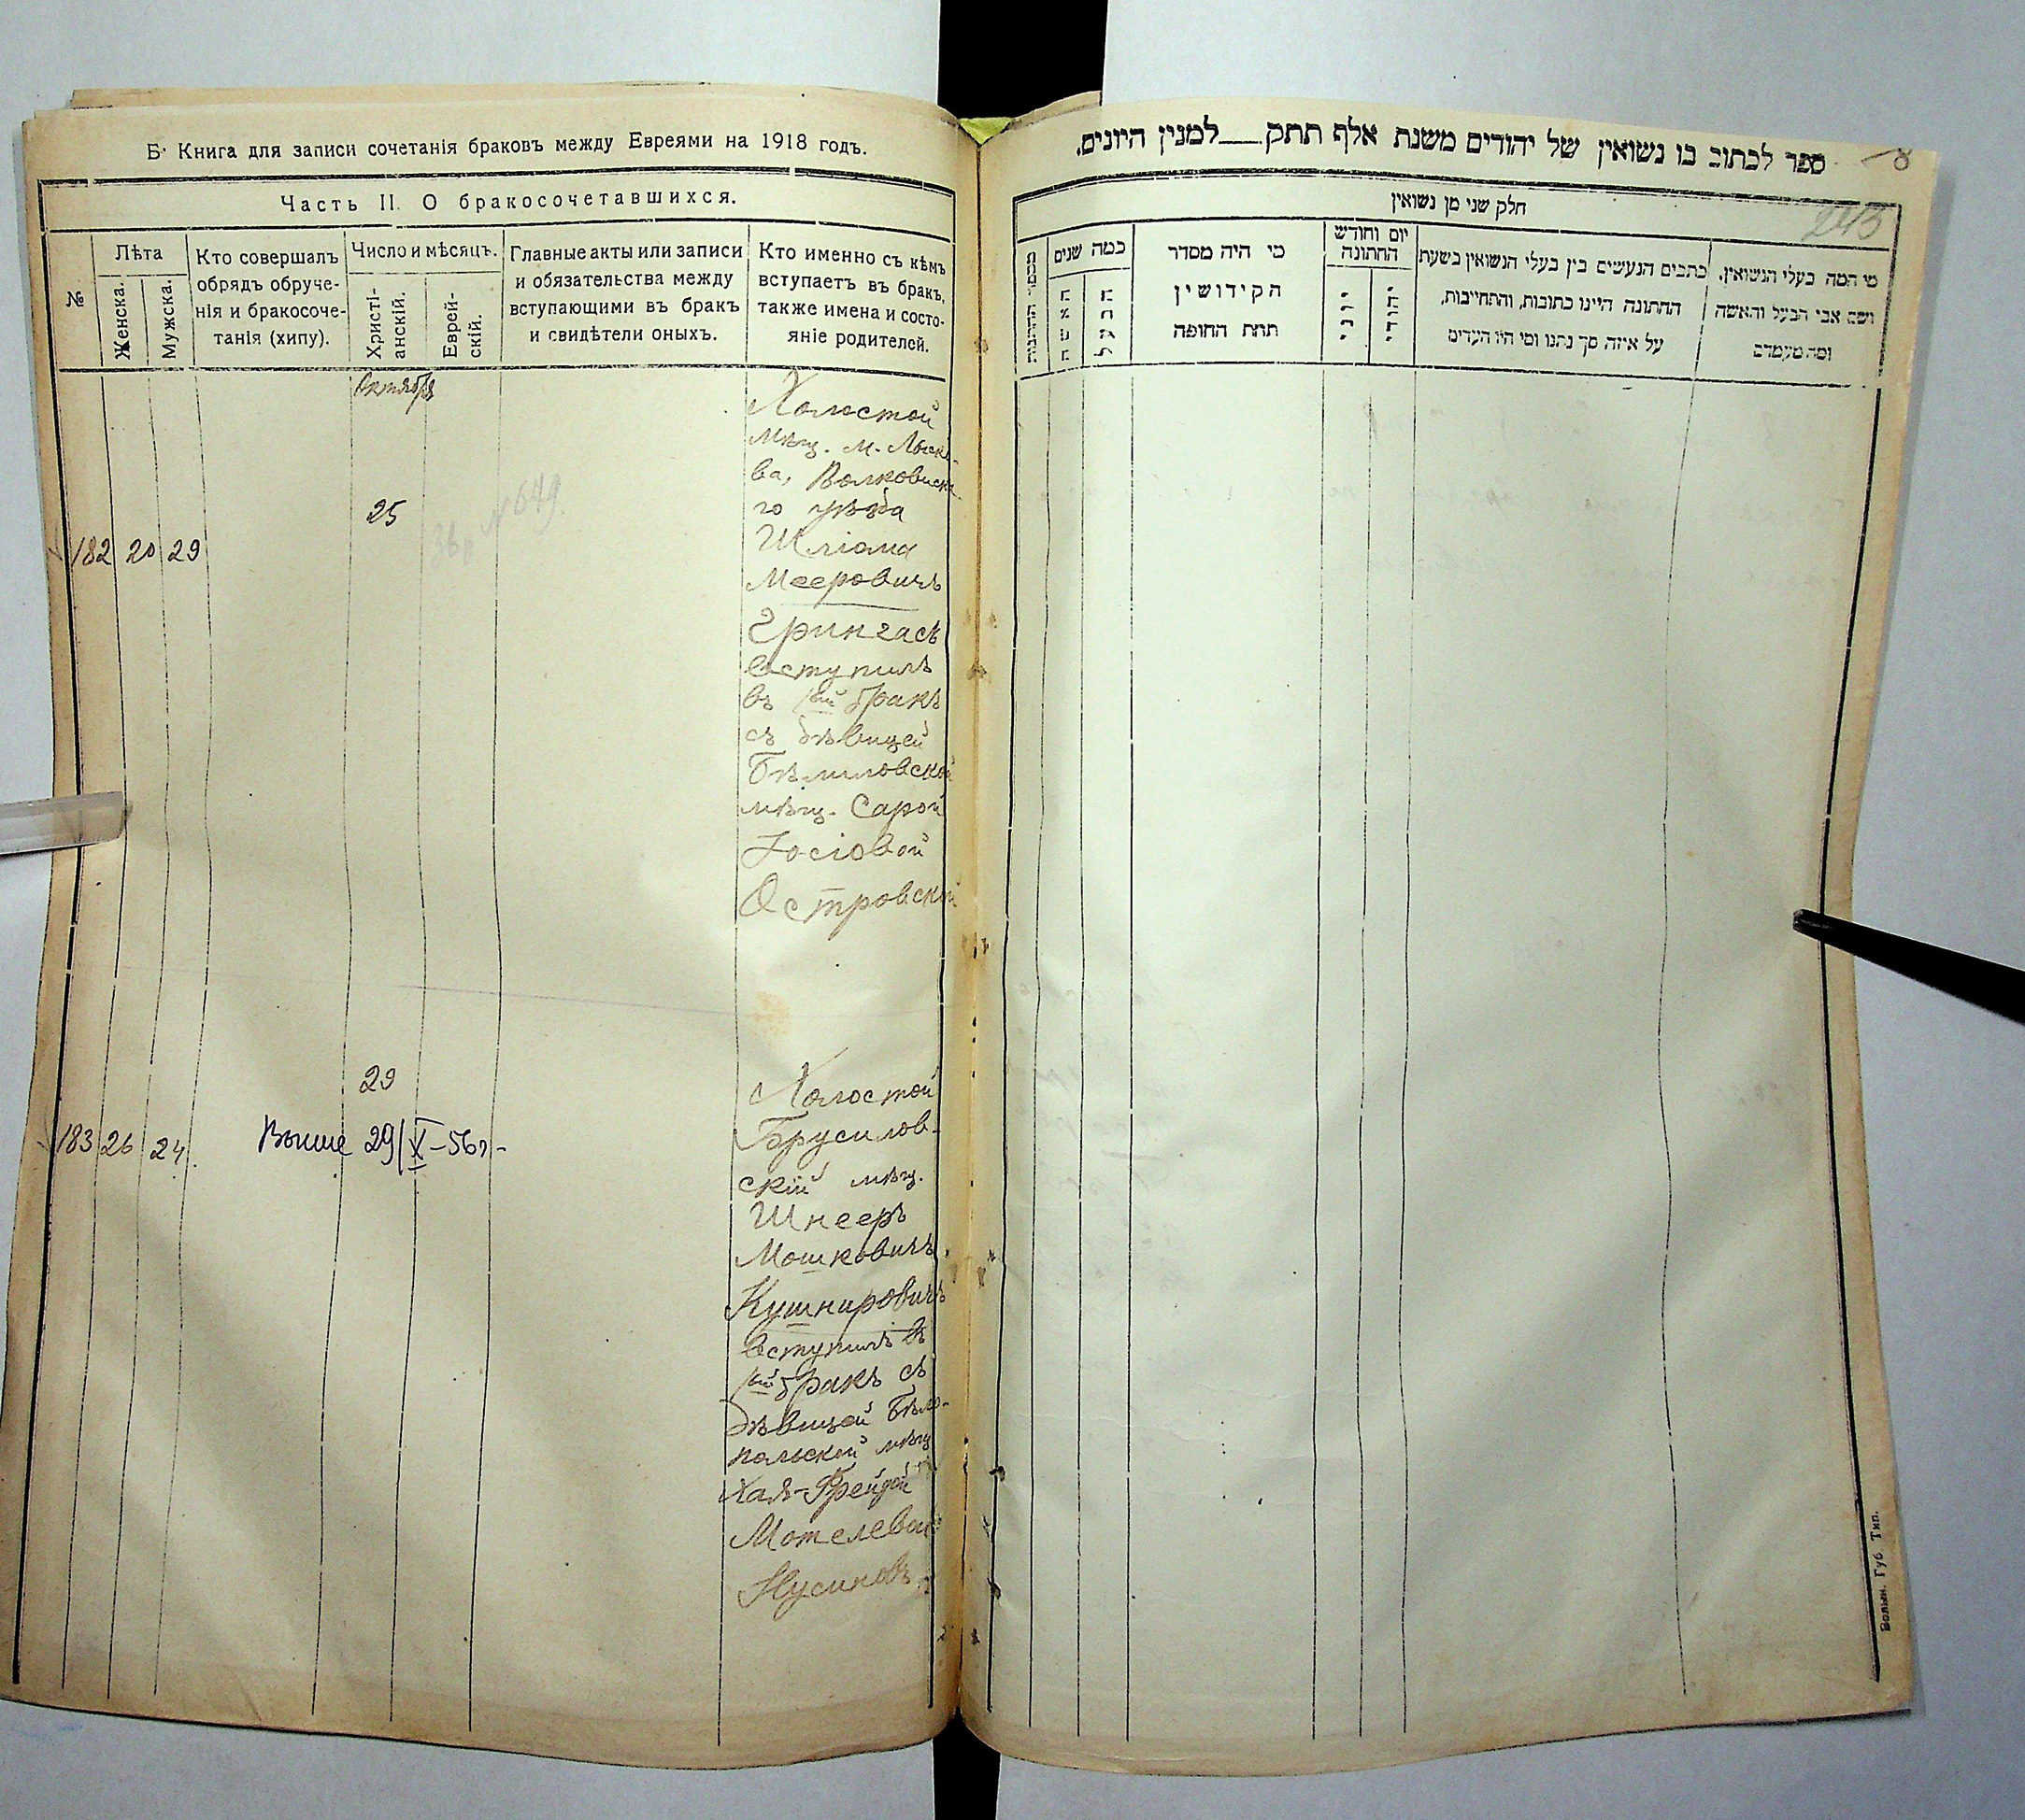 Б. Книга для записи сочетанія браковъ между Евреями на 1918 годъ.
Часть II. О бракосочетавшихся.
№
Лѣта
Женска.
Мужска.
Кто совершалъ
обрядъ обруче-
нія и бракосоче-
танія (хипу).
Число и мѣсяцъ.
Христі-
анскій.
Еврей-
скій.
Главные акты или записи
и обязательства между
вступающими въ бракъ
и свидѣтели оныхъ.
Кто именно съ кѣмъ
вступаетъ въ бракъ,
также имена и состо-
яніе родителей.
Октября
182 20 29
25
№ 649.
Холостой
мѣщ. м. Лыско-
ва, Волковыска-
го уѣзда
Шліома
Мееровичъ
Грингасъ
вступилъ
въ 1ый бракъ
съ дѣвицей
Бѣлиловской
мѣщ. Сарой
Іосіовой
Островской
183 26 24.
29
Выше 29/X-56г-
Холостой
Брусилов-
скій мѣщ.
Шнееръ
Мошковичъ
Кушнировичъ
вступилъ въ
1ый бракъ съ
дѣвицей Бѣло-
польской мѣщ
Хая-Фрейдой
Мотелевой
Нусиновъ
ספר לכתוב בו נשואין של יהודים משנת אלף תתק___למנין היונים.
8
243
חלק שני מן נשואין
מי המה בעלי הנשואין.
ושם אבי הבעל והאשה
ומה מעמדם
כתבים הנעשים בין בעלי הנשואין בשעת
החתונה היינו כתובות, והתחייבות,
על איזה סך נתנו ומי היו העדים
יום וחודש
החתונה
יהודי
יוני
מי היה מסדר
הקידושין
תחת החופה
כמה שנים
הבעל
האשה
Волын. Губ. Тип.